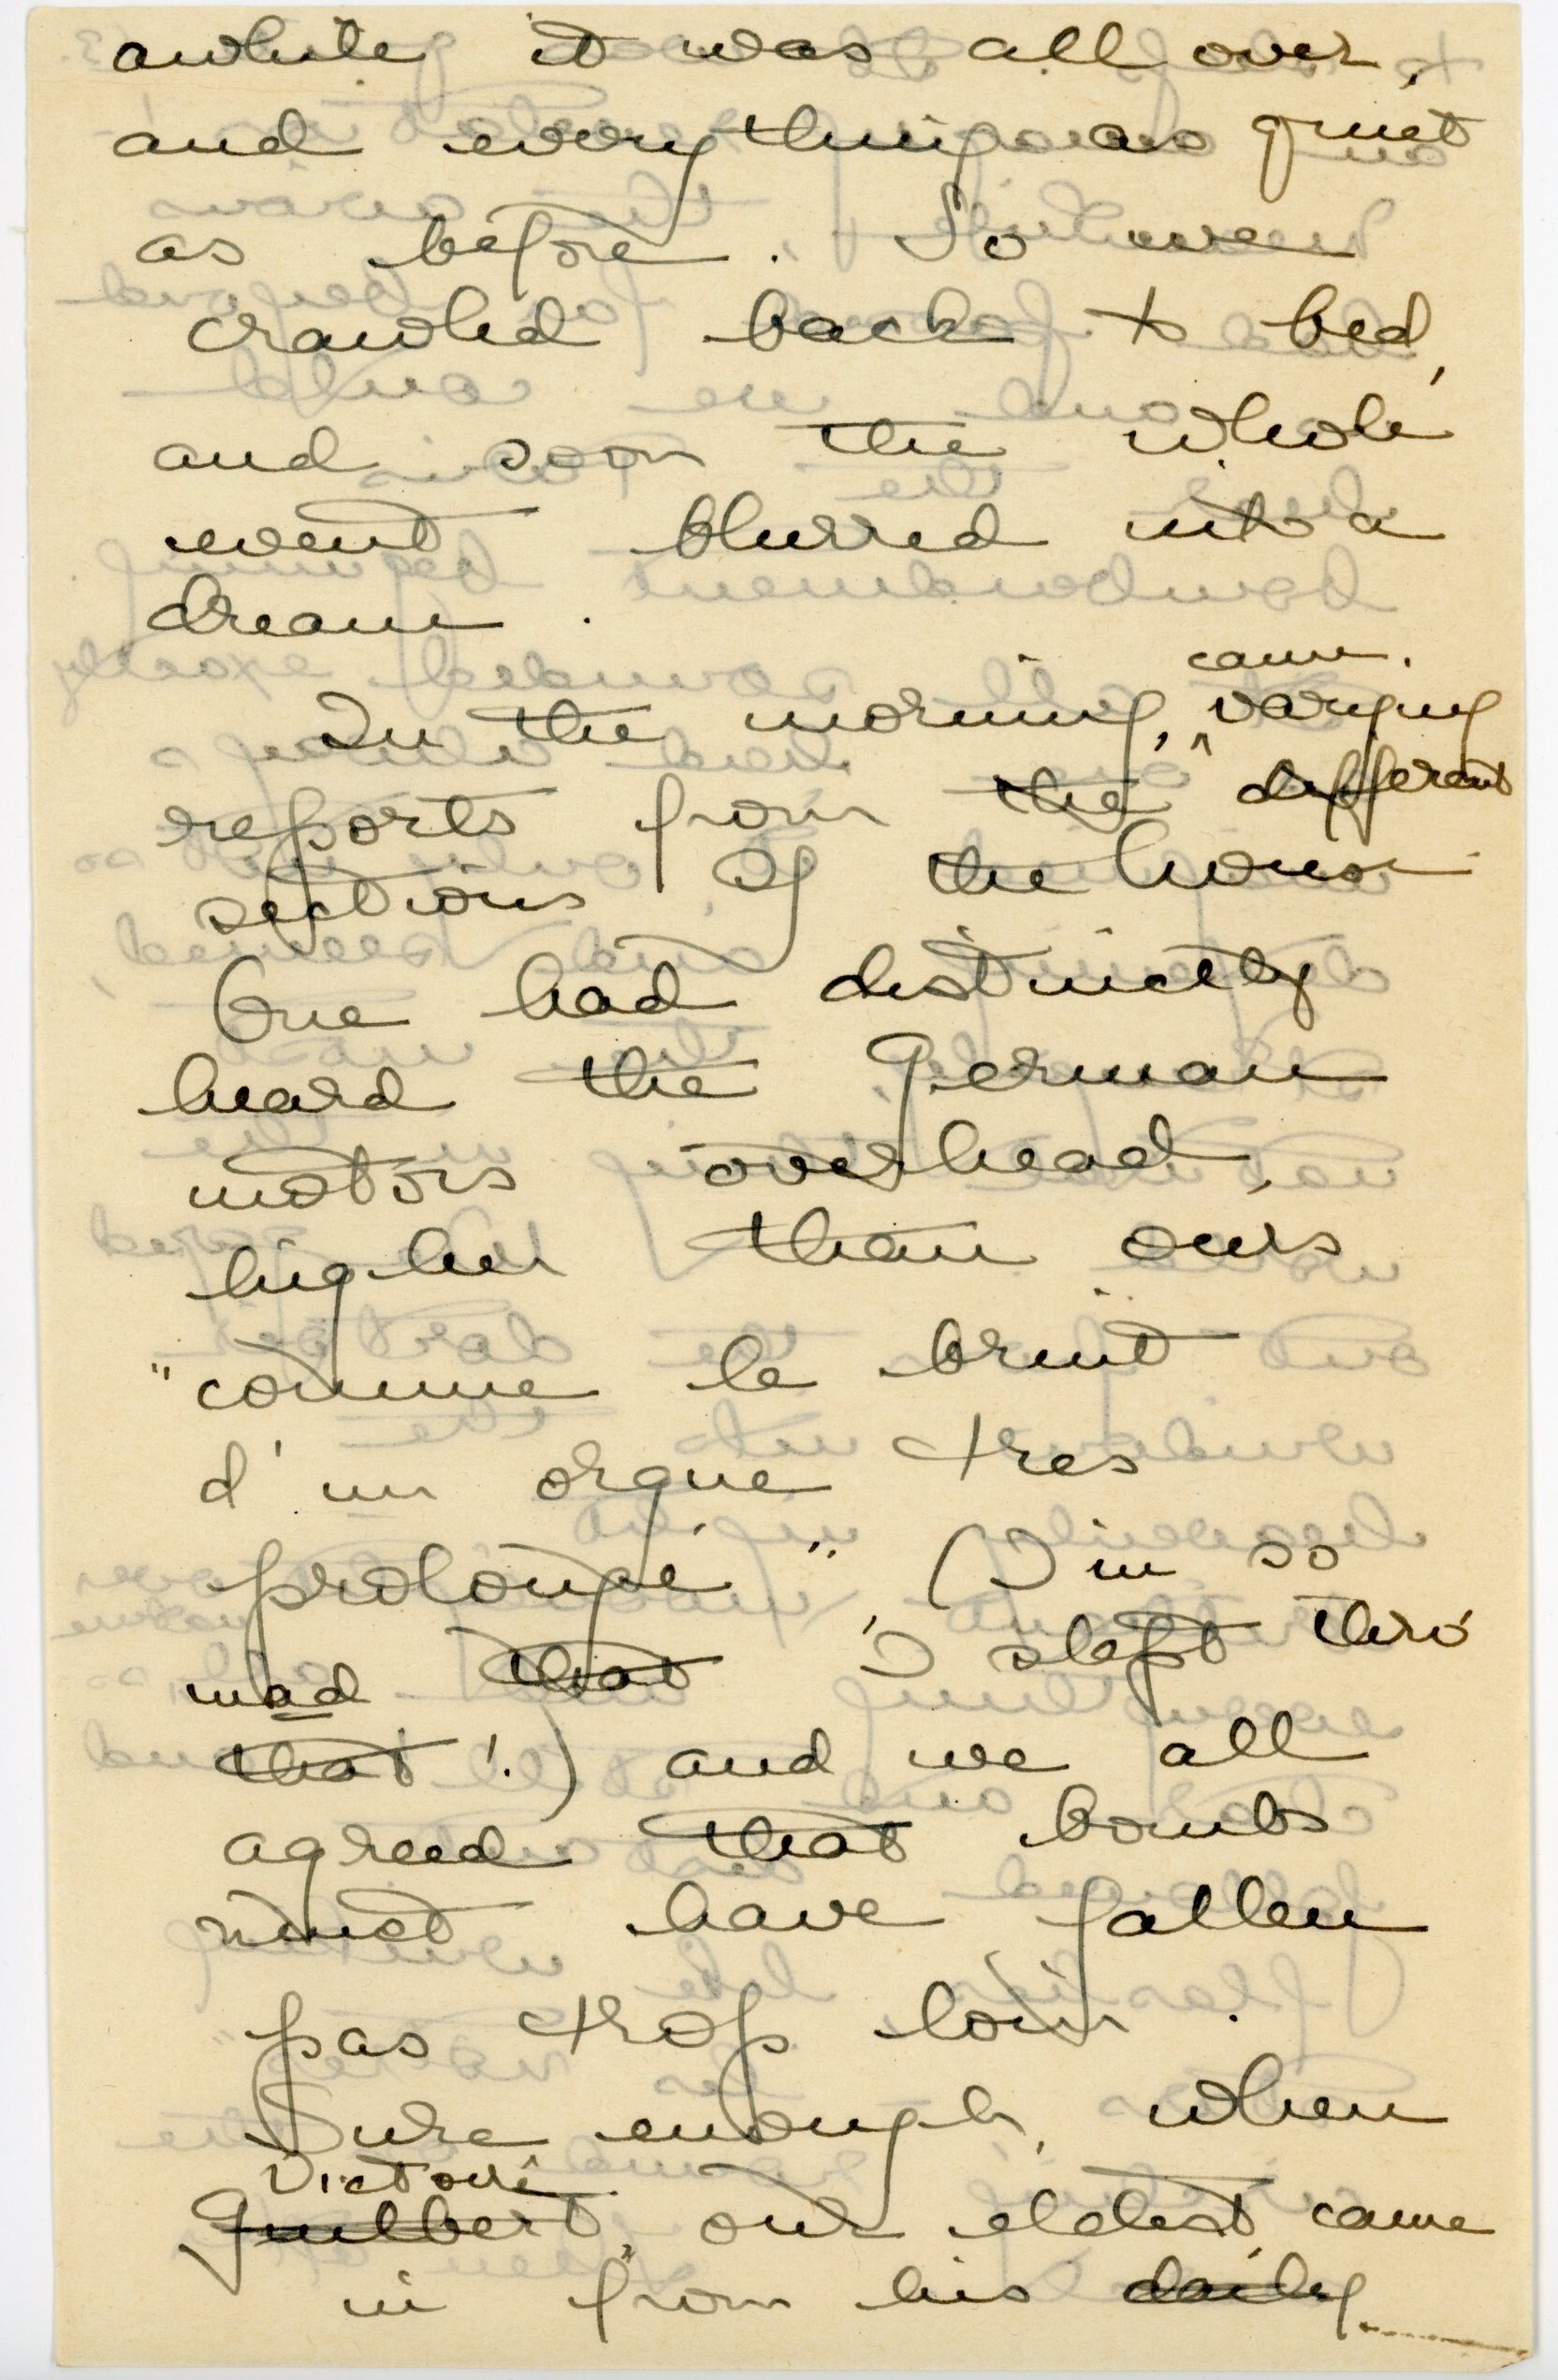 awhile it was all over,
and everything as quiet
as before. So we
crawled back to bed,
and soon the whole
event blurred into a
dream.
came.
In the morning, ^ varying
reports from the different
sections of the house
One had distinctly
heard the German
motors overhead,
higher than ours
"comme le bruit
d'un orgue tres
prolongé" (I'm so
mad that I slept thro'
that!) and we all
agreed that bombs
must have fallen
pas trop loin.
Sure enough, when
Victoire
Guilbert, our eldest, came
in from his daily